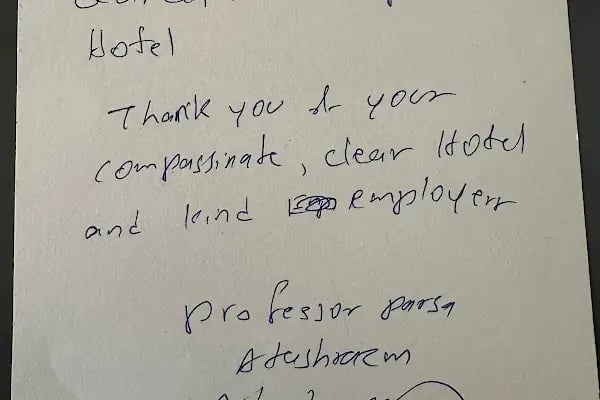 Hotel
Thank you of your
compassinate, clear Hotel
and kind employers
Professor parsa